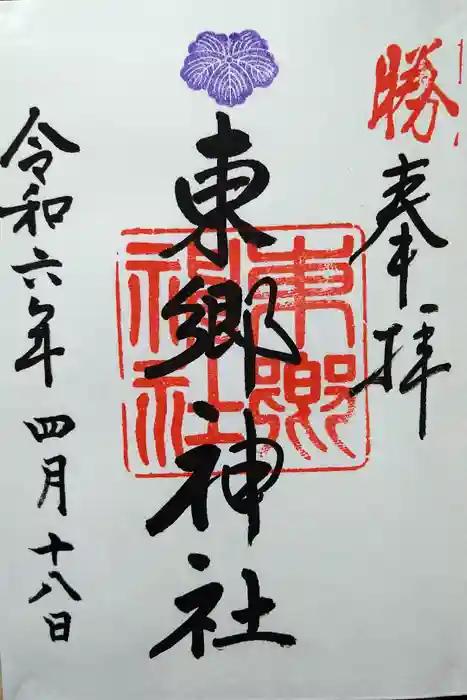 勝
奉拝
東郷神社
東郷神社
令和六年四月十八日